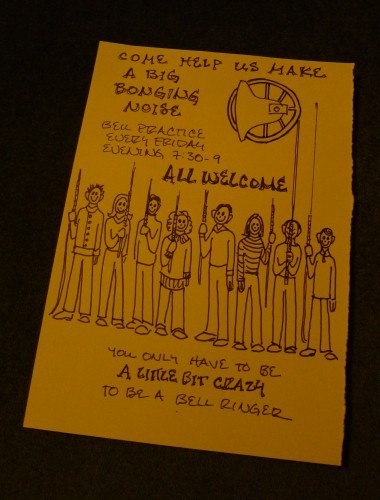 COME HELP US MAKE
A BIG
BONGING
NOISE
BELL PRACTICE
EVERY FRIDAY
EVENING 7:30-9
ALL WELCOME
YOU ONLY HAVE TO BE
A LITTLE BIT CRAZY
TO BE A BELL RINGER